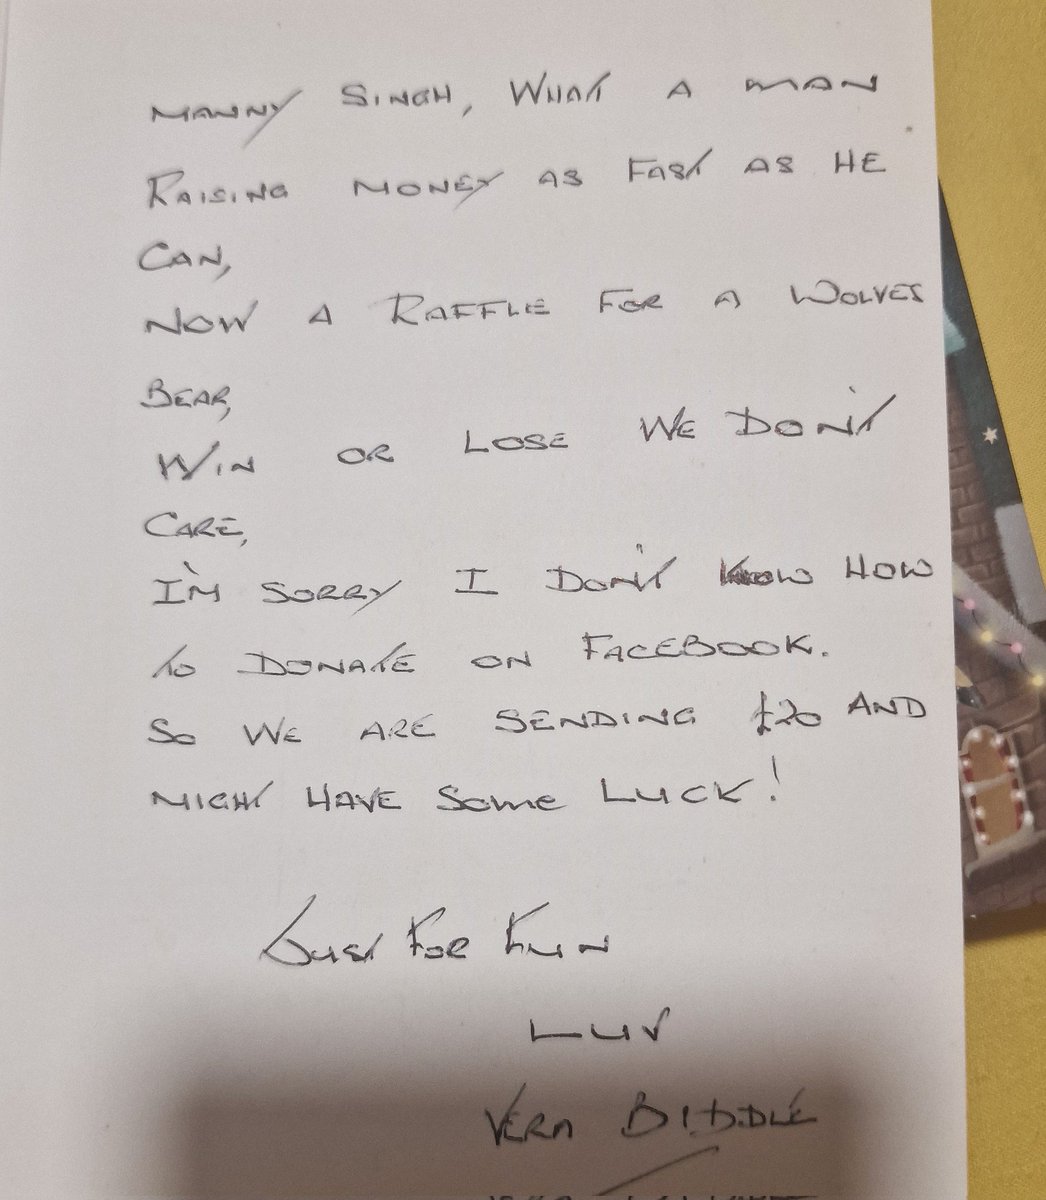 MANNY SINGH, WHAT A MAN
RAISING MONEY AS FAST AS HE
CAN,
NOW A RAFFLE FOR A WOLVES
BEAR,
WIN OR LOSE WE DON'T
CARE,
I'M SORRY I DON'T KNOW HOW
TO DONATE ON FACEBOOK.
SO WE ARE SENDING £20 AND
MIGHT HAVE SOME LUCK!
JUST FOR FUN
LUV
VERA BIDDLE